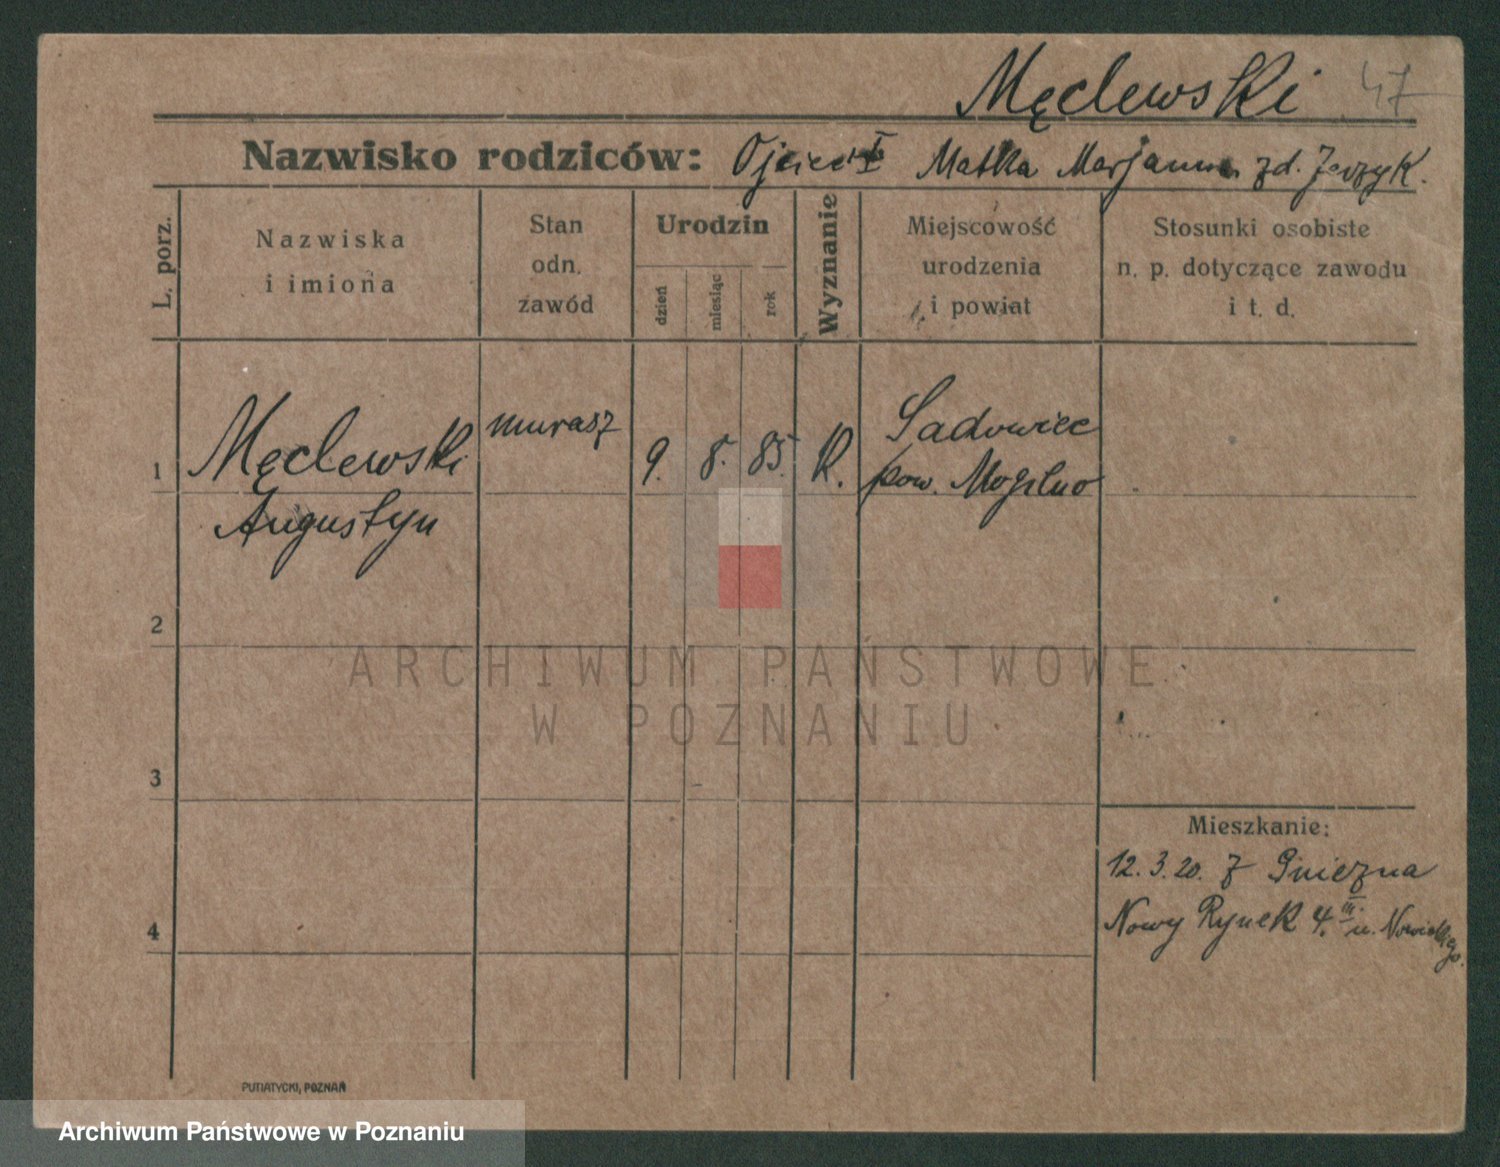 Męclewski 47
Nazwisko rodziców: Ojciec Matka Marjanna zd. Jerzyk.
L. porz.
Nazwiska
i imiona
Stan
odn.
zawód
Urodzin
dzień
miesiąc
rok
Wyznanie
Miejscowość
urodzenia
i powiat
Stosunki osobiste
n. p. dotyczące zawodu
i t. d.
1 Męclewski murarz 9. 8. 85. K. Sadowiec
Augustyn pow. Mogilno
2
ARCHIWUM PAŃSTWOWE
W POZNANIU
3
Mieszkanie:
12.3.20. z Gniezna
Nowy Rynek 4. III. u. Nowickiego.
4
PUTIATYCKI, POZNAŃ
Archiwum Państwowe w Poznaniu